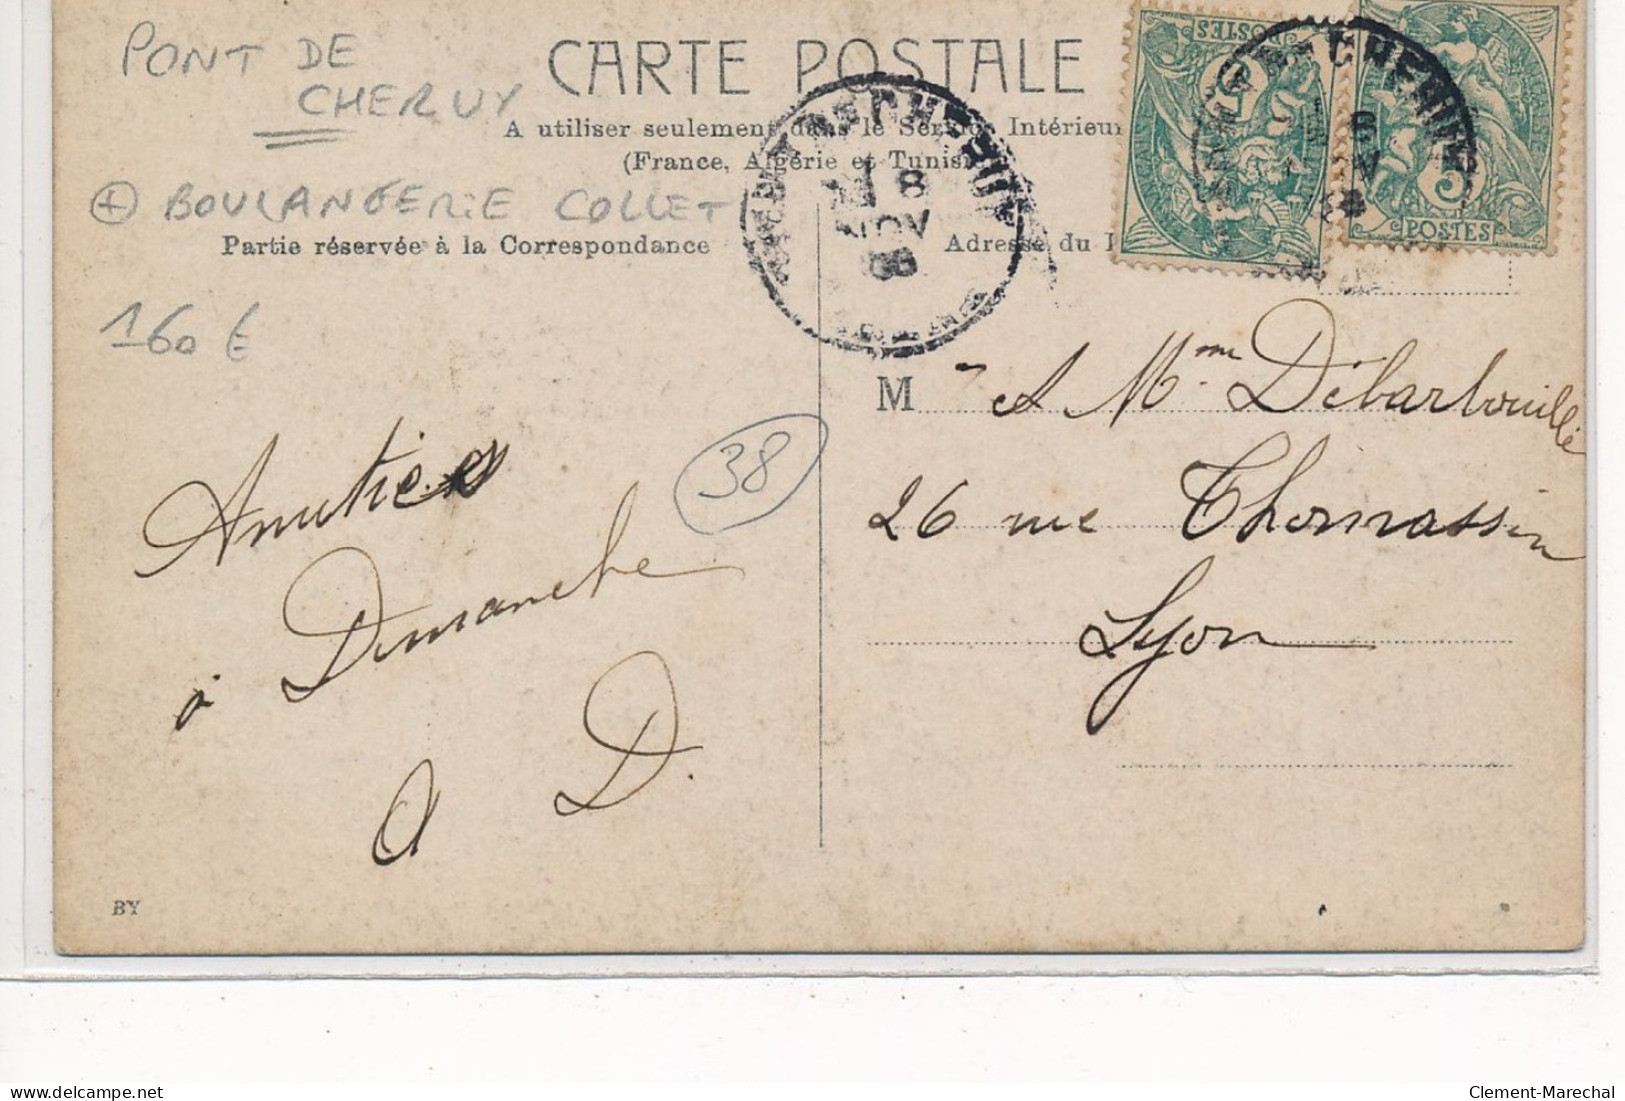 PONT DE
CHERUY
CARTE POSTALE
A utiliser seulement dans le Service Intérieur
(France, Algérie et Tunisi
+ BOULANGERIE COLLET
Partie réservée à la Correspondance
Adresse du
160 €
8
NOV
08
POSTES
5
POSTES
5
DE CHERUY
M A Mme Débarbouillé
26 rue Thomassin
Lyon
38
Amitiés
à Dimanche
A D.
BY
delcampe.net
Clement-Marechal